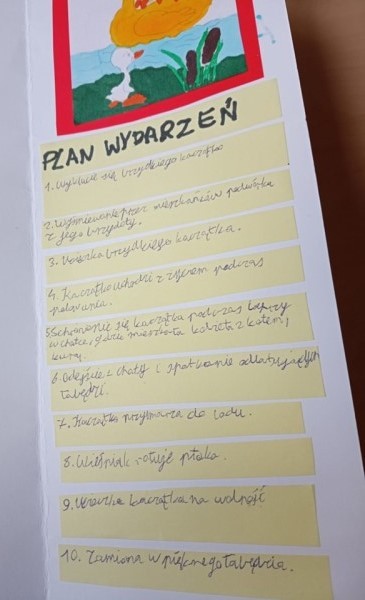 PLAN WYDARZEŃ
1. Wyklucie się brzydkiego kaczątka
2. Wyśmiewanie przez mieszkańców podwórka
z jego brzydoty.
3. Ucieczka brzydkiego kaczątka.
4. Kaczątko uchodzi z życiem podczas
polowania.
5. Schronienie się kaczątka podczas burzy
w chatce, gdzie mieszkała kobieta z kotem i
kurą.
6. Odejście z chaty i spotkanie odlatujących
łabędzi.
7. Kaczątko przymarza do lodu.
8. Wieśniak ratuje ptaka.
9. Ucieczka kaczątka na wolność
10. Zamiana w pięknego łabędzia.